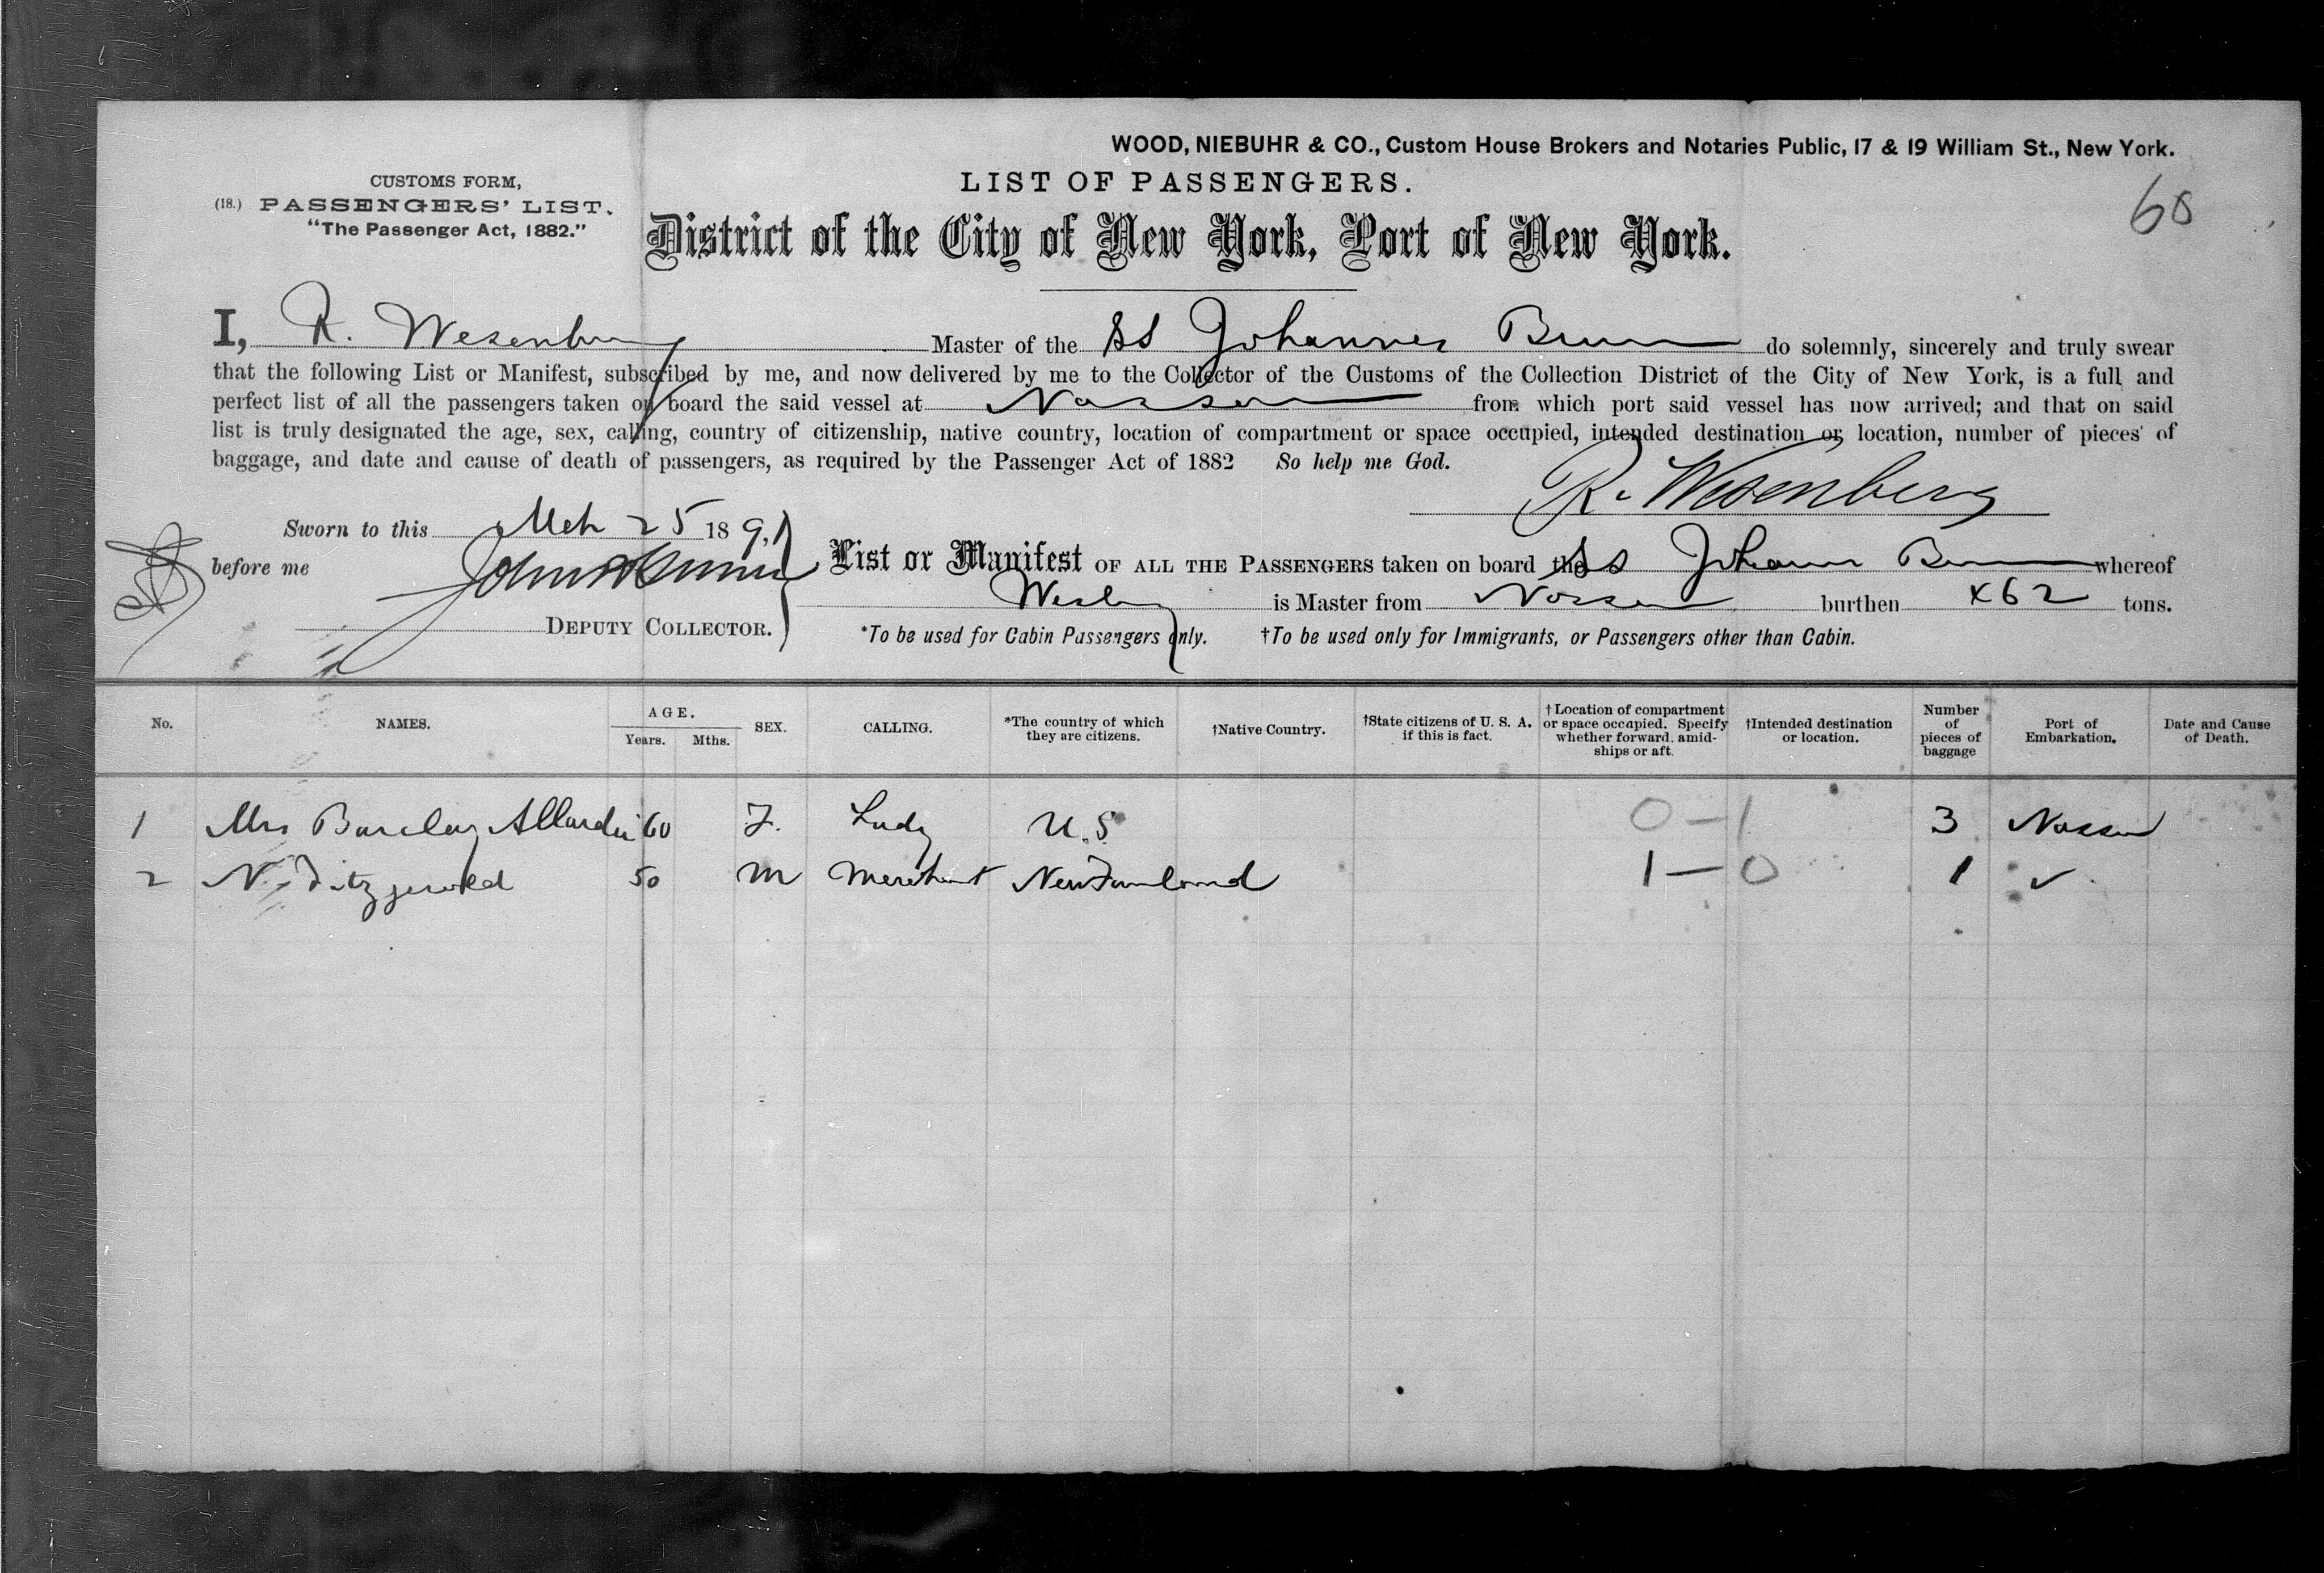 WOOD, NIEBUHR & CO., Custom House Brokers and Notaries Public, 17 & 19 William St., New York.
CUSTOMS FORM,
(18.) PASSENGERS' LIST.
"The Passenger Act, 1882."
LIST OF PASSENGERS.
60
District of the City of New York, Port of New York.
I, R. Wesenberg Master of the SS Johannes Brun do solemnly, sincerely and truly swear
that the following List or Manifest, subscribed by me, and now delivered by me to the Collector of the Customs of the Collection District of the City of New York, is a full and
perfect list of all the passengers taken on board the said vessel at Nassau from which port said vessel has now arrived; and that on said
list is truly designated the age, sex, calling, country of citizenship, native country, location of compartment or space occupied, intended destination or location, number of pieces of
baggage, and date and cause of death of passengers, as required by the Passenger Act of 1882 So help me God.
R. Wesenberg
Sworn to this Mch 25 1891
before me
DEPUTY COLLECTOR.
List or Manifest OF ALL THE PASSENGERS taken on board the SS Johannes Brun whereof
is Master from Nassau burthen 462 tons.
*To be used for Cabin Passengers only. †To be used only for Immigrants, or Passengers other than Cabin.
No. NAMES. AGE. Years. Mths. SEX. CALLING. *The country of which they are citizens. †Native Country. †State citizens of U. S. A. if this is fact. †Location of compartment or space occupied. Specify whether forward, amidships or aft. †Intended destination or location. Number of pieces of baggage Port of Embarkation. Date and Cause of Death.
1 Mrs Barclay Allardice 60 F. Lady U.S 0-1 3 Nassau
2 N. Fitzgerald 50 M Merchant Newfoundland 1-0 1 ✓